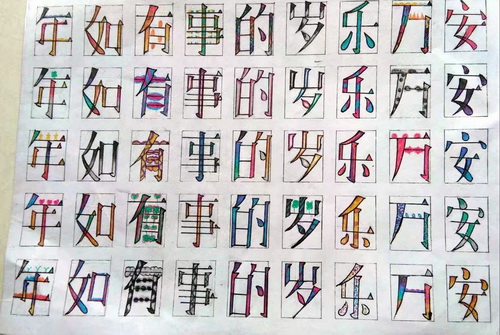 年如有事的岁乐万安
年如有事的岁乐万安
年如有事的岁乐万安
年如有事的岁乐万安
年如有事的岁乐万安